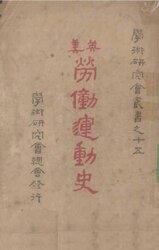 學術研究會叢書之十五
英美
勞働運動史
學術研究會總會發行